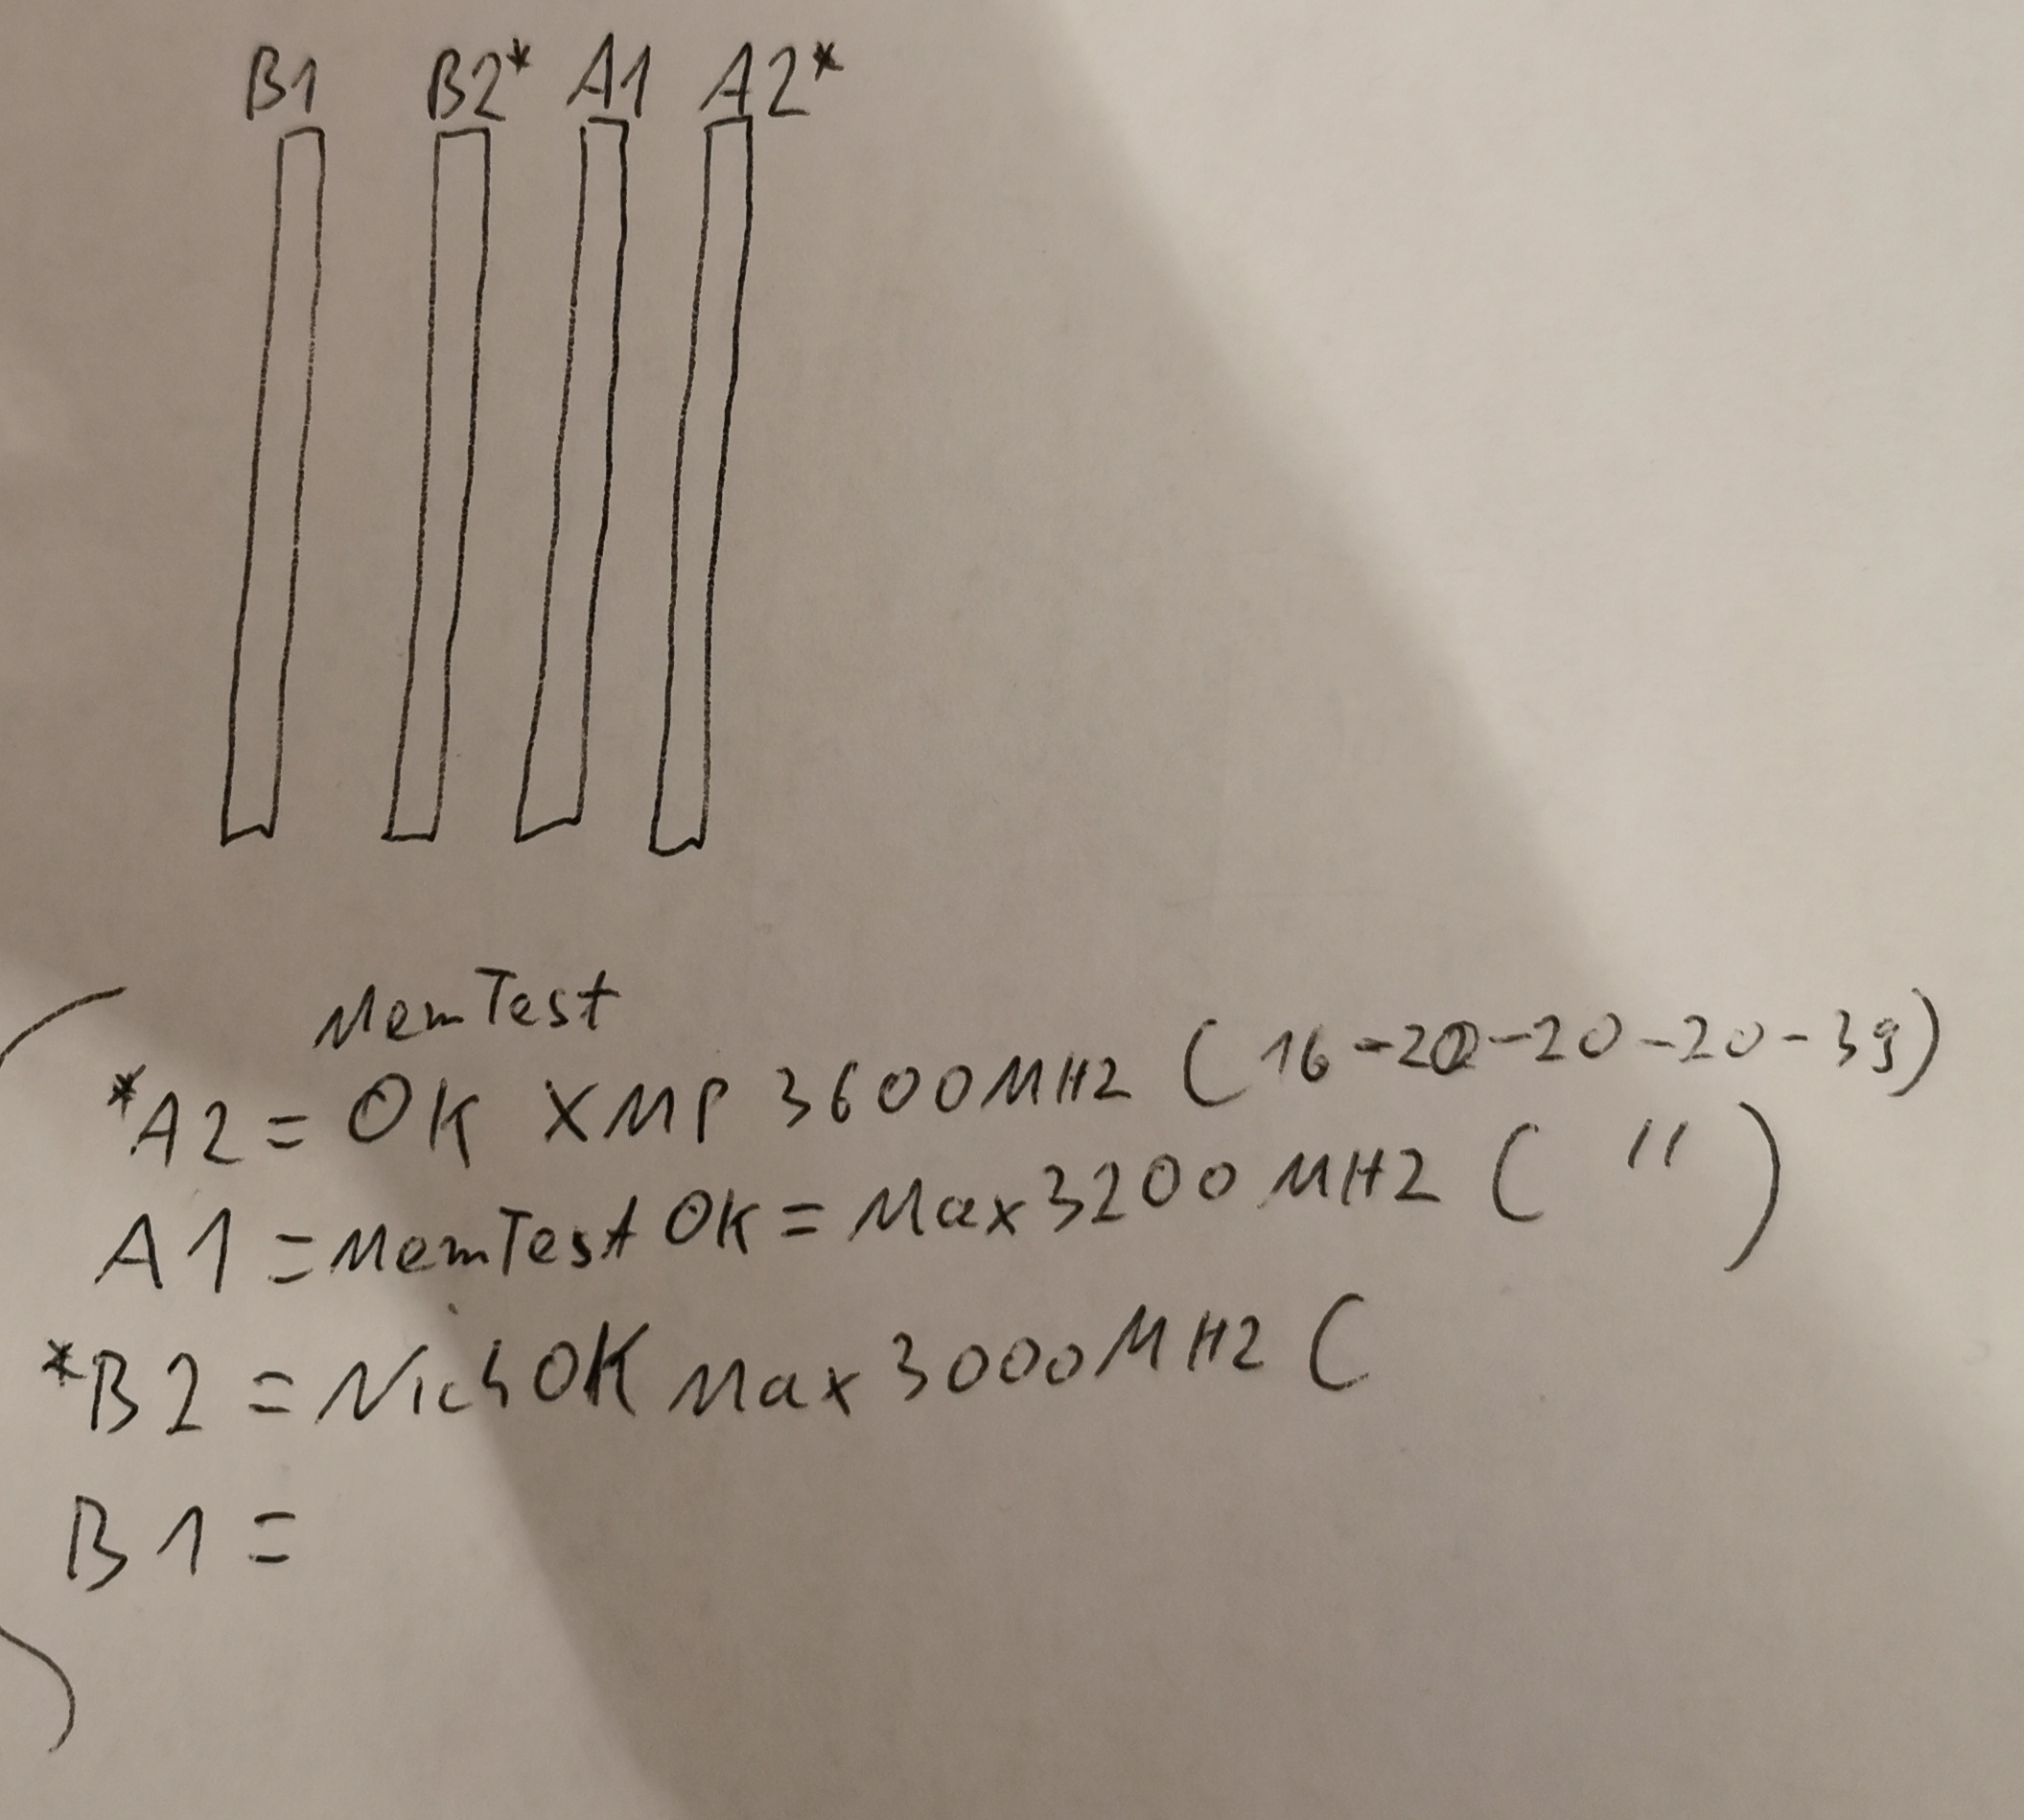 B1 B2* A1 A2*
MemTest
*A2 = OK XMP 3600MHz (16-20-20-20-39)
A1 = MemTest OK = Max 3200MHz ( " )
*B2 = Nich OK Max 3000MHz (
B1 =